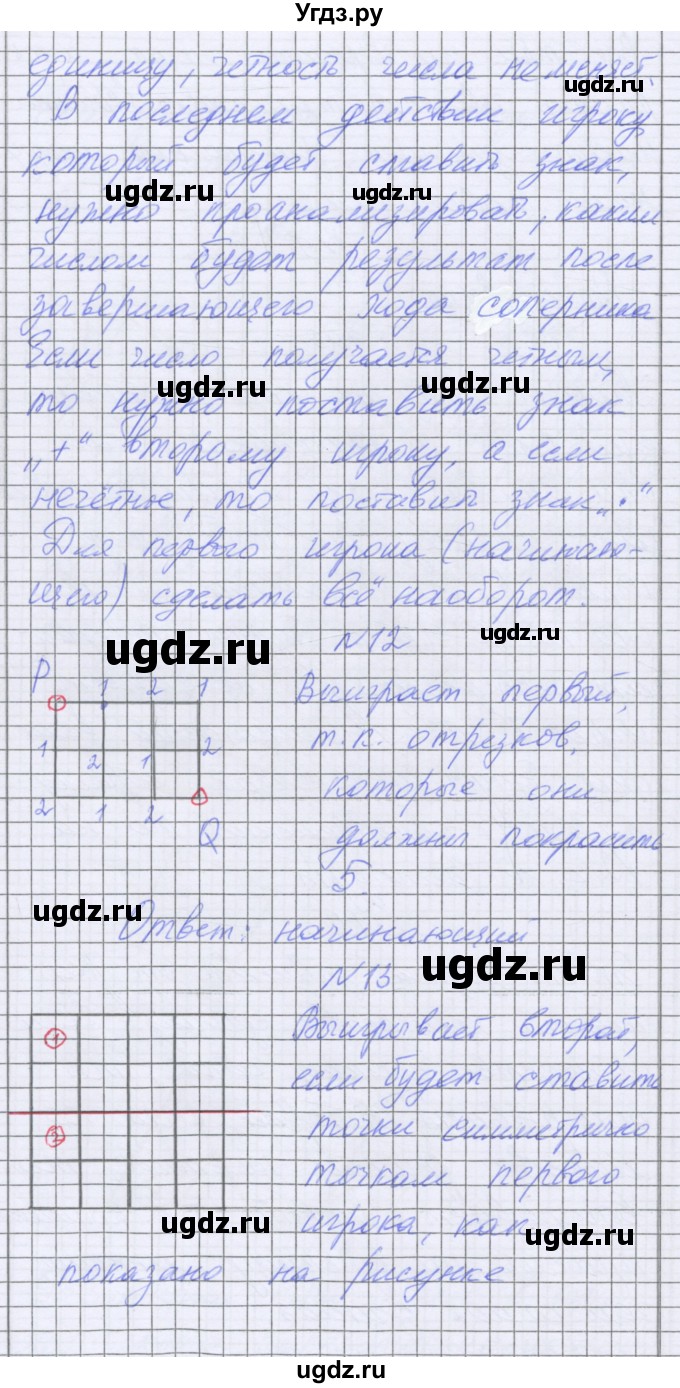 Угдз.ру
единицу, четность числа не меняет.
ugdz.ru
В последнем действии игроку
который будет ставить знак,
ugdz.ru ugdz.ru
нужно проанализировать, каким
числом будет результат после
завершающего хода соперника
Если число получается четным,
ugdz.ru ugdz.ru
то нужно поставить знак
„+“ второму игроку, а если
нечётные, то поставить знак „·“
Для первого игрока (начинаю-
щего) сделать всё наоборот.
ugdz.ru ugdz.ru
N12
P 1 2 1
Выиграет первый,
т.к. отрезков,
1 2 1 2
которые они
2 1 2
Q
должны покрасить
5.
ugdz.ru
Ответ: начинающий
ugdz.ru
N13
1
Выигрывает второй,
если будет ставить
2
точки симметрично
точкам первого
ugdz.ru ugdz.ru
игрока, как
показано на рисунке
ugdz.ru